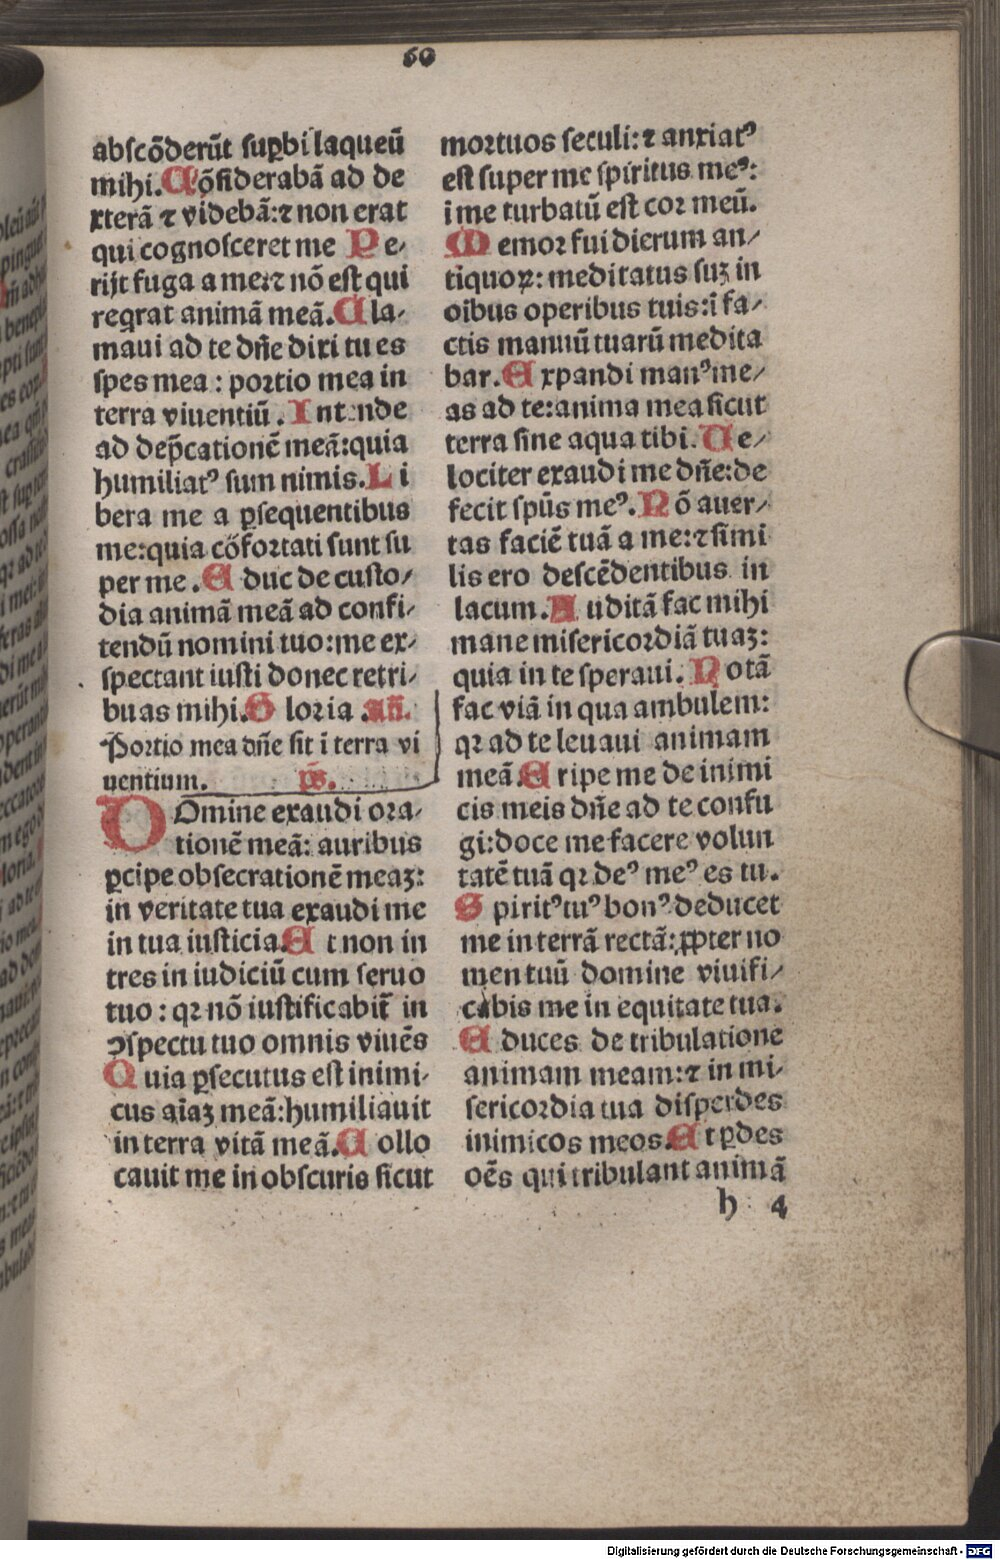 60
abscōderūt suꝑbi laqueū
mihi. Cōsiderabā ad de
xterā ⁊ videbā:⁊ non erat
qui cognosceret me Pe⸗
rijt fuga a me:⁊ nō est qui
reqrat animā meā. Cla⸗
maui ad te dn̄e dixi tu es
spes mea : portio mea in
terra viuentiū. Intende
ad dep̄cationē meā:quia
humiliatꝰ sum nimis. Li
bera me a ꝑsequentibus
me:quia cōfortati sunt su
per me. Educ de custo⸗
dia animā meā ad confi⸗
tendū nomini tuo:me ex⸗
spectant iusti donec retri⸗
buas mihi. Gloria .an̄.
Portio mea dn̄e sit ī terra vi
uentium. ps̄.
DOmine exaudi ora⸗
tionē meā: auribus
ꝑcipe obsecrationē meaȝ:
in veritate tua exaudi me
in tua iusticia. Et non in
tres in iudiciū cum seruo
tuo : qꝛ nō iustificabit̄ in
ꝯspectu tuo omnis viuēs
Quia ꝑsecutus est inimi⸗
cus aīaȝ meā:humiliauit
in terra vitā meā. Collo
cauit me in obscuris sicut
mortuos seculi:⁊ anxiatꝰ
est super me spiritus meꝰ:
i me turbatū est cor meū.
Memor fui dierum an⸗
tiquoꝝ: meditatus suȝ in
oībus operibus tuis:ī fa⸗
ctis manuū tuarū medita
bar. Expandi manꝰ me⸗
as ad te:anima mea sicut
terra sine aqua tibi. Ue⸗
lociter exaudi me dn̄e:de
fecit spūs meꝰ. Nō auer⸗
tas faciē tuā a me:⁊ simi
lis ero descēdentibus in
lacum. Auditā fac mihi
mane misericordiā tuaȝ:
quia in te speraui. Notā
fac viā in qua ambulem:
qꝛ ad te leuaui animam
meā. Eripe me de inimi
cis meis dn̄e ad te confu
gi:doce me facere volun
tatē tuā qꝛ deꝰ meꝰ es tu.
Spiritꝰ tuꝰ bonꝰ deducet
me in terrā rectā:ꝓpter no
men tuū domine viuifi⸗
cabis me in equitate tua.
Educes de tribulatione
animam meam:⁊ in mi⸗
sericordia tua disperdes
inimicos meos. Et ꝑdes
oēs qui tribulant animā
h 4
Digitalisierung gefördert durch die Deutsche Forschungsgemeinschaft - DFG